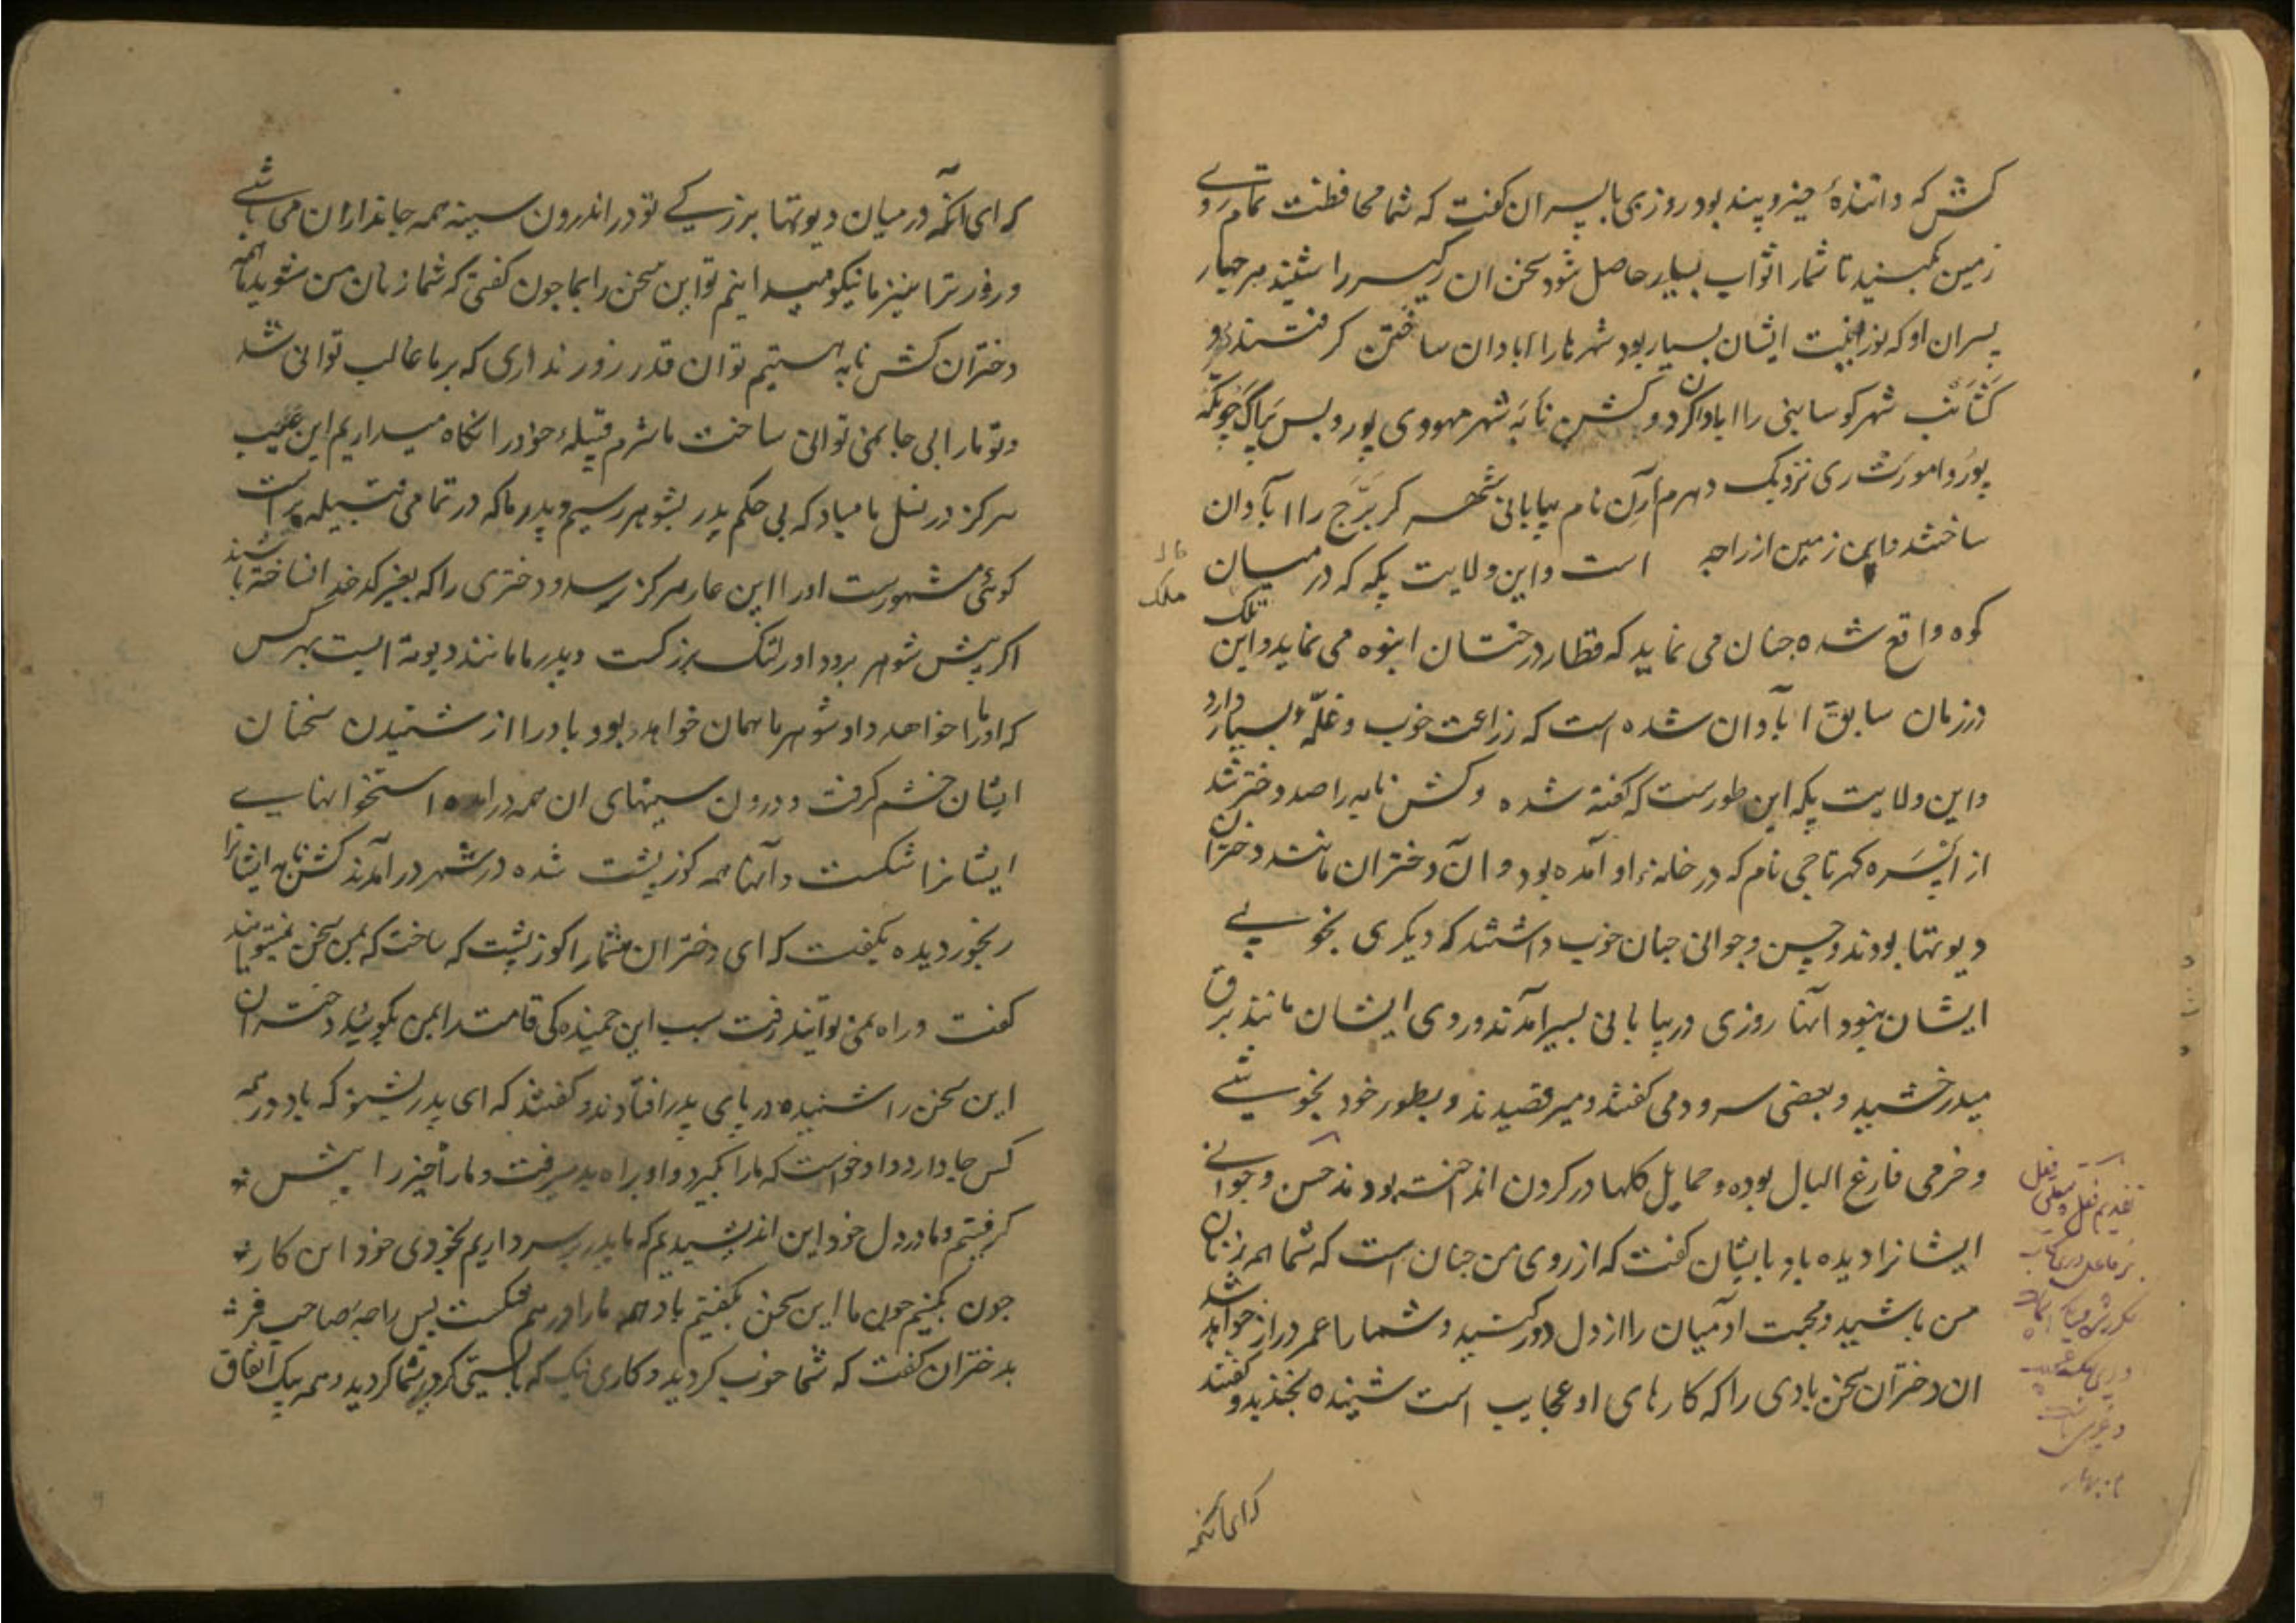 کش که دانندهٔ چیز و پند بود روزی با پسران کفت که شما محافظت تمام روی
زمین بکنید تا شما را ثواب بسیار حاصل شود سخن ان را شنیده هر چهار
پسران او که نور ایشان بسیار بود شهر ها را ابادان ساختن کرفتند و
کشانب شهر کوسابنی را ابادان کرد و کشن نابه شهر مهودی پور و بس
پور و امورت ری نزدیک دهرم آرن نام بیابانی شهر کر برج را ابادان
ساختند و این زمین از راجه است و این ولایت پکه که در میان
تلک
ملک
کوه واقع شده چنان می نماید که قطار درختان انبوه می نماید و این
در زمان سابق ابادان شده است که زراعت خوب و غلّه بسیار دارد
و این ولایت پکه این طورست که کفته شده و کش نابه را صد دختر شد
از اپسره کهرتاچی نام که در خانهٔ او آمده بود و ان دختران مانند دختران
دیوتها بودند و حسن و جوانی چنان خوب داشتند که دیکری بخوبی
ایشان نبود انها روزی در بیابانی بسیر امدند و روی ایشان مانند برق
میدرخشید و بعضی سرود می کفتند و میرقصیدند و بطور خود بخوشی
و خرمی فارغ البال بوده و حمایل کلها در کردن انداخته بودند حسن و جوانی
ایشانرا دیده باد بایشان کفت که ارزوی من چنان است که شما همه زنان
من باشید و محبت ادمیان را از دل دور کنید و شما را عمر دراز خواهد شد
ان دختران سخن بادی را که کارهای او عجایب است شنیده بخندیدند و کفتند
که ای انکه
که ای انکه در میان دیوتها بزرکی تو در اندرون سینه همه جانداران می باشی
و زور ترا نیز ما نیکو میدانیم تو این سخن را بما چون کفتی که شما زنان من شوید ما همه
دختران کش نابه هستیم تو ان قدر زور نداری که بر ما غالب توانی شد
و تو ما را بی جا نمی توانی ساخت ما شرم قبیلهٔ خود را نکاه میداریم این عیب
هرکز در نسل ما مباد که بی حکم پدر بشوهر رسیم و پدر ما که در تمامی قبیله براست
کوئی مشهورست او را این عار هرکز نرسد و دختری را که بغیر کدخدا ساخته باشند
اکر پیش شوهر برود او را ننک بزرکست و پدر ما مانند دیوته است بهر کس
که او ما را خواهد داد شوهر ما همان خواهد بود باد را از شنیدن سخنان
ایشان خشم کرفت و درون سینهای ان همه درامده استخوانهای
ایشانرا شکست و آنها همه کوز پشت شده در شهر درآمدند کش نابه ایشانرا
رنجور دیده بکفت که ای دختران شما را کوز پشت که ساخت که بمن سخن نمیتوانید
کفت و راه نمی توانید رفت سبب این خمیده کی قامت را بمن بکوئید دختران
این سخن را شنیده در پای پدر افتادند و کفتند که ای پدر بشنو که باد در همه
کس جا دارد و او خواست که ما را بکیرد و او براه بد میرفت و ما راه خیر را پیش
کرفتیم و ما در دل خود این اندیشیدیم که ما پدر بر سر داریم بخودی خود این کار
چون بکنیم چون ما این سخن بکفتیم باد همه ما را در هم شکست پس راجه صاحب فر
بدختران کفت که شما خوب کردید و کاری نیک که بایستی کرد شما کردید و همه بیک اتفاق